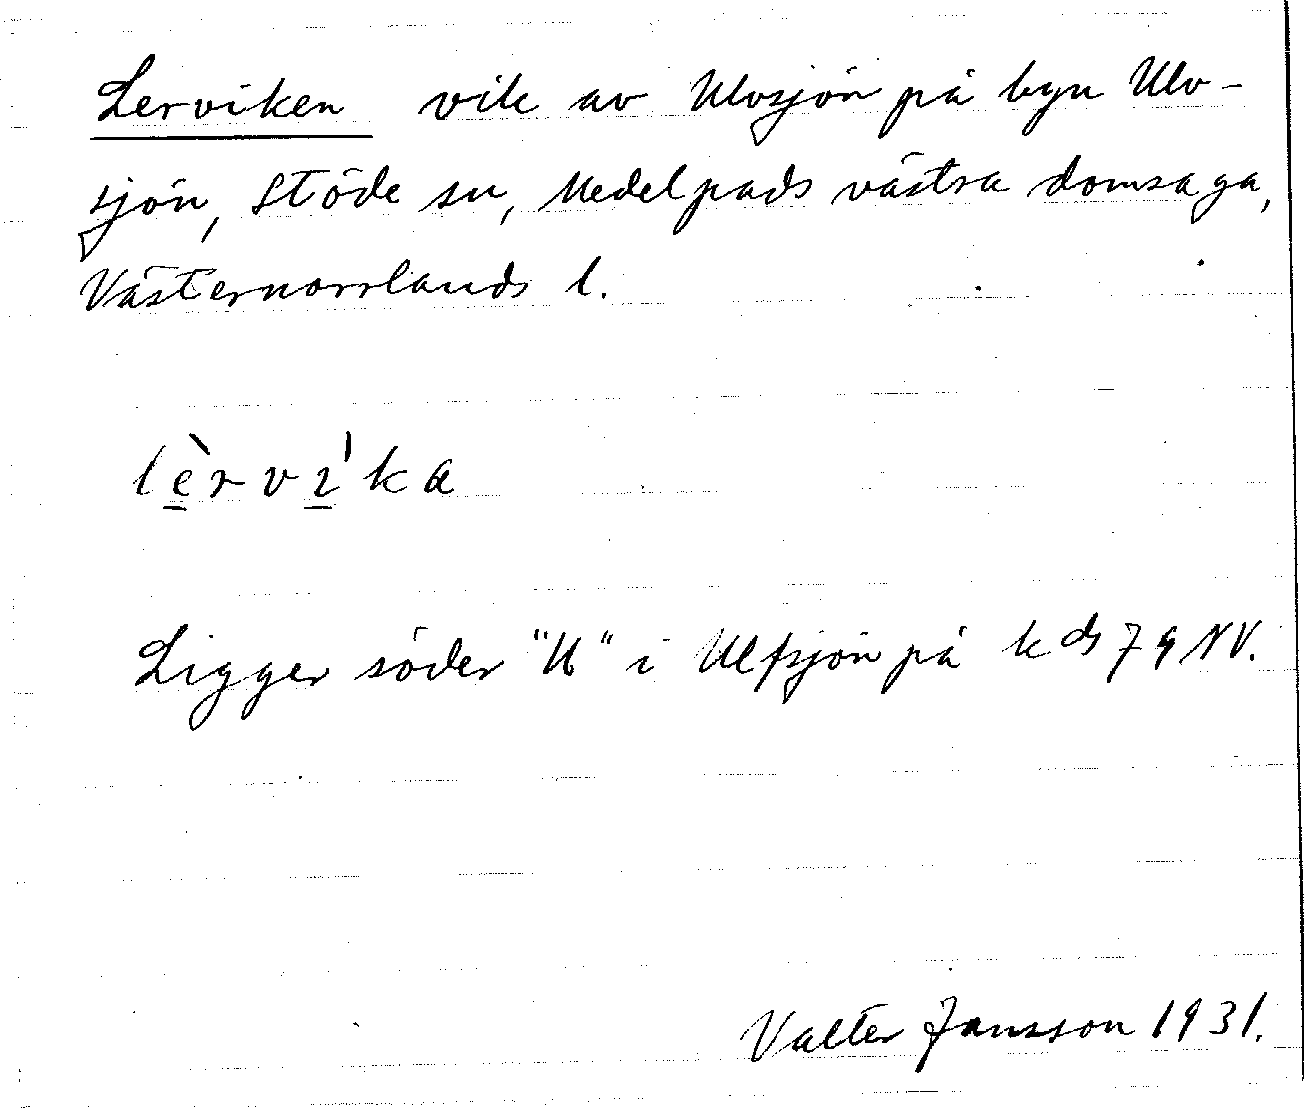 Lerviken vik av Ulvsjön på byn Ulv-
sjön, Stöde sn, Medelpads västra domsaga,
Västernorrlands l.
lè̠rvı̠'ka
Ligger söder "U" i Ulfsjön på kbl 79 NV.
Valter Jansson 1931.